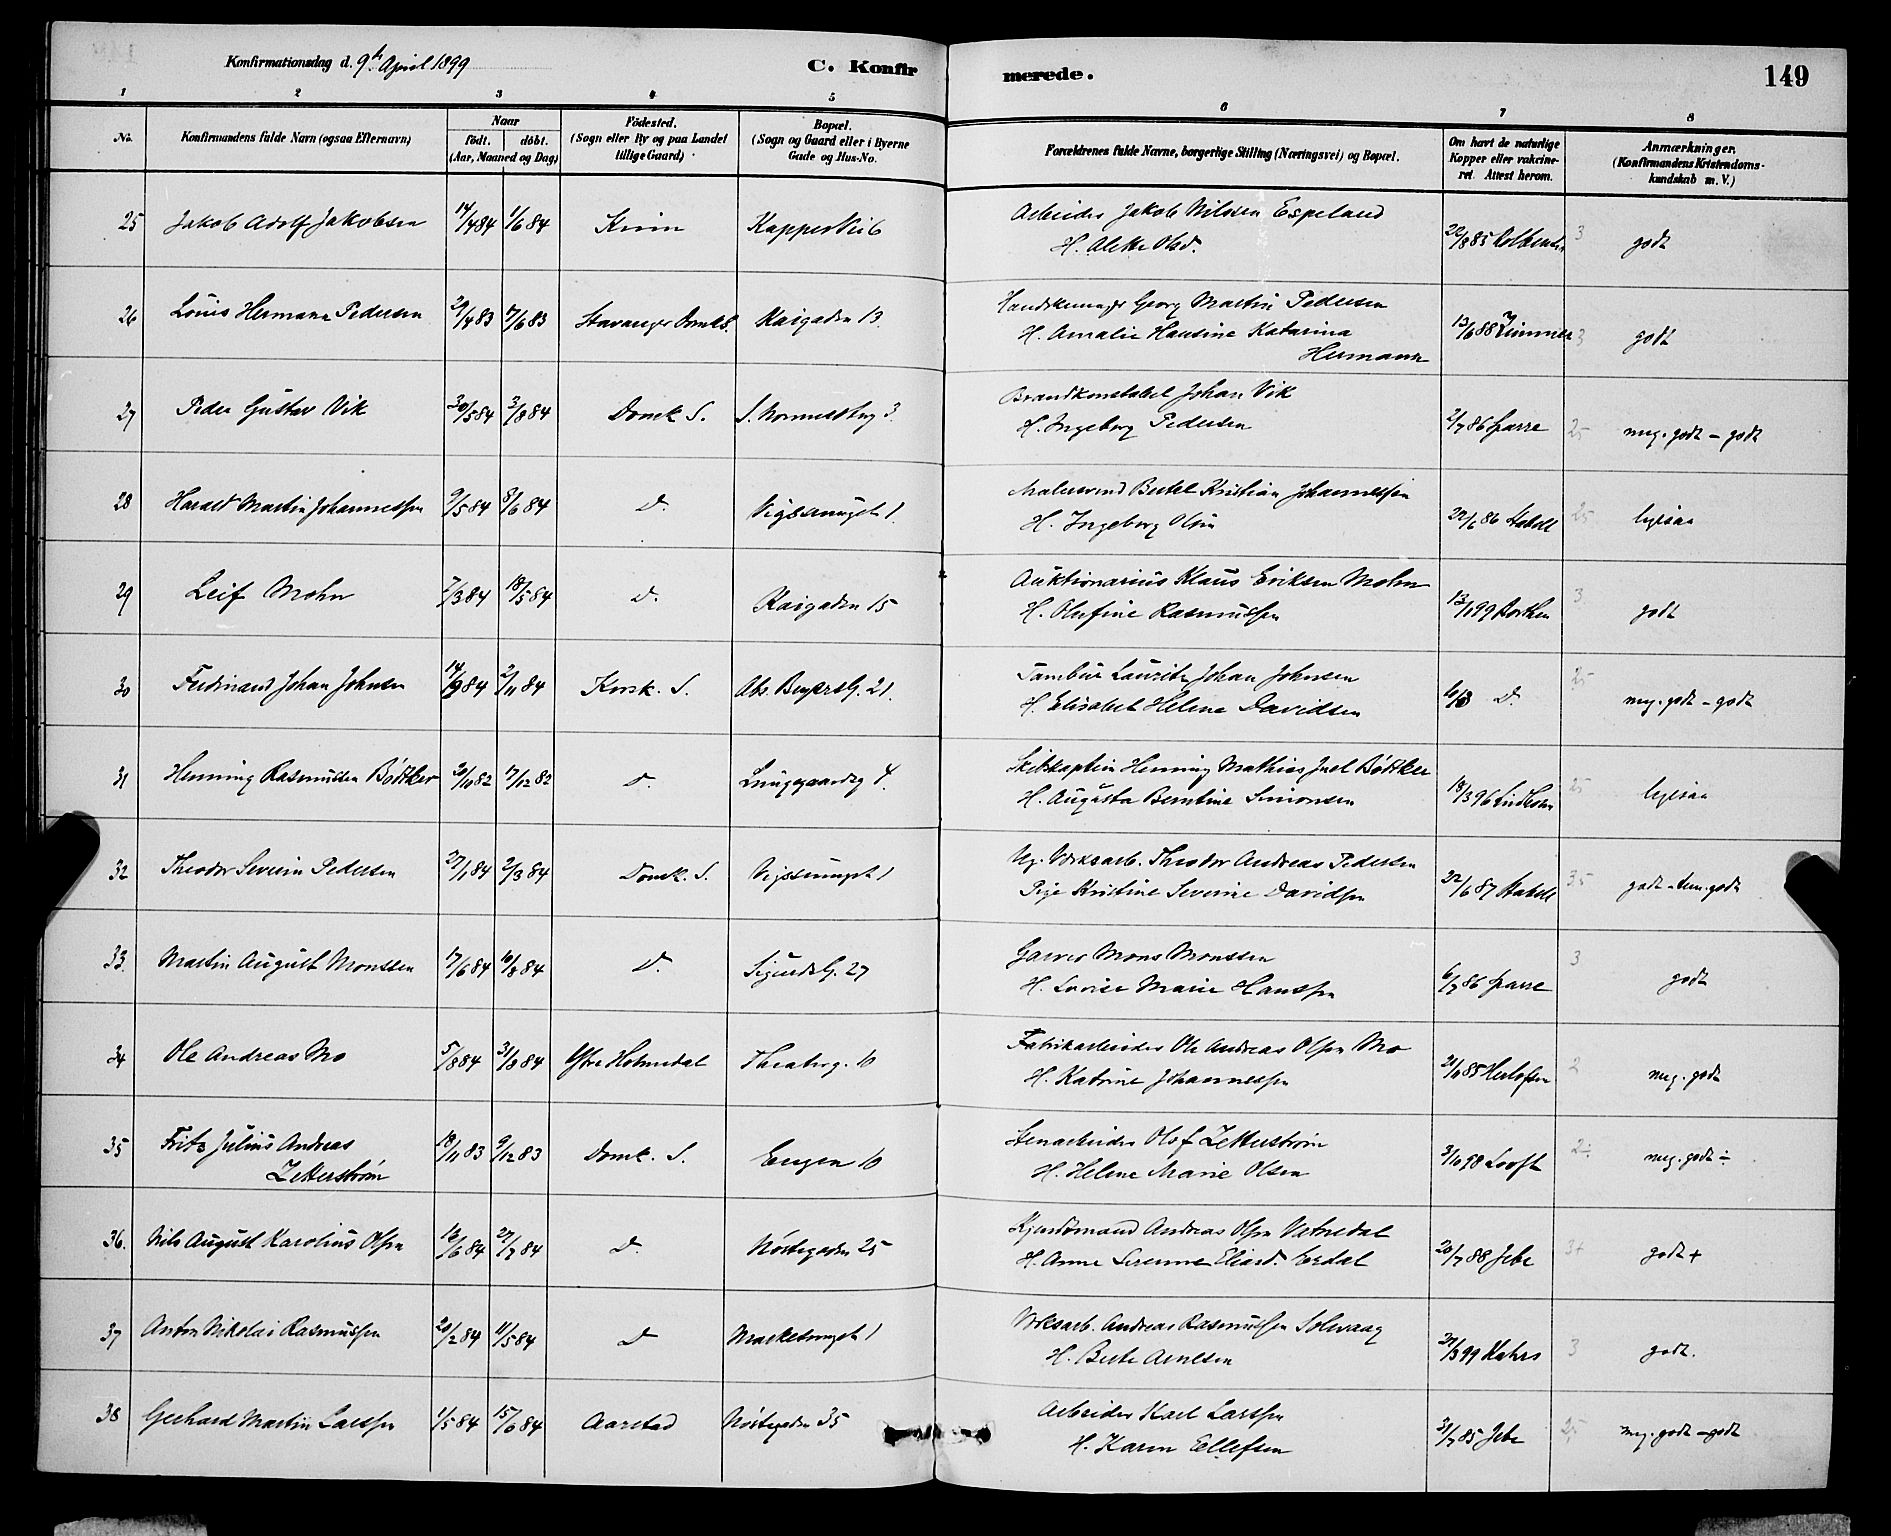 Konfirmationsdag d. 9de April 1899
C. Konfirmerede.
149
1 2 3 4 5 6 7 8
No.
Konfirmandens fulde Navn (ogsaa Efternavn)
Naar
födt. döbt.
(Aar, Maaned og Dag)
Födested.
(Sogn eller By og paa Landet
tillige Gaard)
Bopæl.
(Sogn og Gaard eller i Byerne
Gade og Hus-No.
Forældrenes fulde Navne, borgerlige Stilling (Næringsvei) og Bopæl.
Om havt de naturlige
Kopper eller vakcine-
ret Attest herom.
Anmærkninger.
(Konfirmandens Kristendoms-
kundskab m. V.)
25 Jakob Adolf Jakobsen 14/4 84 1/6 84 Kinn Kappevei 6
Arbeider Jakob Nilssen Espeland
H. Alette Olsd. 22/8 85 3 godt
26 Louis Hermann Pedersen 29/4 83 17/6 83 Stavanger Domks. Kaigaden 13
Handskemager Georg Martin Pedersen
H. Amalie Hansine Katarina
Hermann 13/6 88 Zimmer 3 godt
27 Peder Gustav Vik 30/5 84 3/8 84 Domk S. 3.
Brandkonstabel Johan Vik
H. Ingeborg Pedersen 2/7 86 Sparre 25 meg. godt - godt
28 Harald Martin Johannessen 9/5 84 8/6 84 D. Vigssmuget 1.
Malersvend Bertel Kristian Johannessen
H. Ingeborg Olsen 22/6 86 Stabell 25 ligesaa
29 Leif Mohn 7/3 84 18/5 84 D. Kaigaden 15
Auktionarius Klaus Eriksen Mohn
H. Olufine Rasmussen 13/1 99 3 godt
30 Ferdinand Johan Johnsen 14/9 84 2/11 84 Korsk. S. Abs. Beyersg. 21.
Tambur Lauritz Johan Johnsen
H. Elisabet Helene Davidsen D. 25 meg. godt - godt
31 Henning Rasmussen Bödtker 20/10 82 17/12 82 D. Lungegaardsg 4.
Skibskaptein Henning Mathias Juel Bödtker
H. Augusta Berntine Simonsen 18/3 96 25 ligesaa
32 Theodor Severin Pedersen 27/1 84 2/3 84 Domk. S. Vigssmuget 1
Ug. Verksarb. Theodor Andreas Pedersen
Pige Kristine Severine Davidsen 22/6 87 Stabell 35 godt - tem. godt
33. Martin August Monssen 17/6 84 10/8 84 D. Sigurdsg. 27
Garver Mons Monssen
H. Lovise Marie Hanssen 6/7 86 Sparre 3 godt
34 Ole Andreas Mo 5/8 84 31/8 84 Ytre Holmedal Theaterg. 10
Fabrikarbeider Ole Andreas Olsen Mo
H. Katrine Johannessen 21/10 85 Herlofsen 2 meg. godt
35 Fritz Julius Andreas
Zetterström 18/11 83 9/12 83 Domk. S. Engen 10
Stenarbeider Olof Zetterström
H. Helene Marie Olsen 3/10 98 Looft 2÷ meg. godt ÷
36. Nils August Karolius Olsen 16/6 84 27/7 84 D. Nöstegaden 25
Kjendtmand Andreas Olsen Vatnedal
H. Anne Serenne Eliasd. Erdal 20/7 88 Jebe 3+ godt +
37 Anton Nikolai Rasmussen 20/2 84 11/5 84 D Markesmuget 1
Verksarb. Andreas Rasmussen Solevaag
H. Berte Arnesen 27/3 99 Kahrs 3 godt.
38 Gerhard Martin Larssen 1/5 84 15/6 84 Aarstad Nöstegaden 35
Arbeider Karl Larssen
H. Karen Ellefsen 31/7 85 Jebe 25 meg. godt - godt